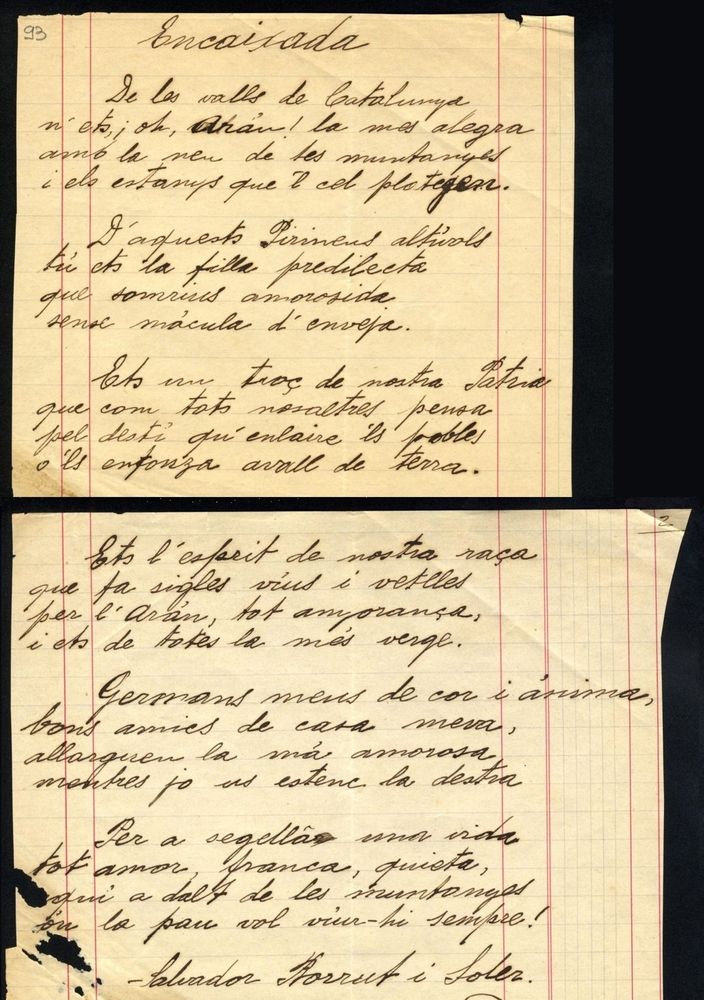 93
Encaixada
De les valls de Catalunya
n' ets, ¡oh, Arán! la mes alegra
amb la neu de tes muntanyes
i els estanys que 'l cel plotegen.
D'aquests Pirineus altívols
tú ets la filla predilecta
que somrius amorosida
sense mácula d'enveja.
Ets un troç de nostra Patria
que com tots nosaltres pensa
pel destí qu'enlaire 'ls pobles
o 'ls enfonza avall de terra.
2
Ets l'esprit de nostra raça
que fa sigles vius i vetlles
per l'Arán, tot anyorança,
i ets de totes la més verge.
Germans meus de cor i ánima,
bons amics de casa meva,
allargueu la má amorosa
mentres jo us estenc la destra
Per a segellar una vida
tot amor, franca, quieta,
aquí a dalt de les muntanyes
ón la pau vol viur-hi sempre!
-Salvador Morrut i Soler.